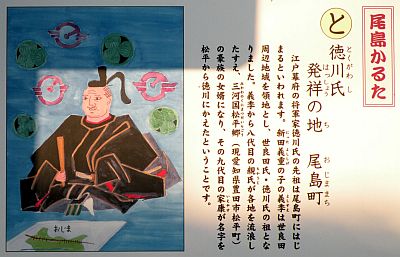 尾島かるた
と
徳川氏
とくがわし
発祥の地 尾島町
はっしょう ち おじままち
江戸幕府の将軍家徳川氏の先祖は尾島町にはじ
まるといわれます。新田義重の子の義季は世良田
周辺地域を領地とし、世良田氏・徳川氏の祖とな
りました。義季から八代目の親氏が各地を流浪し
たすえ、三河国松平郷(現愛知県豊田市松平町)
の豪族の女婿になり、その九代目の家康が名字を
松平から徳川にかえたということです。
おじま